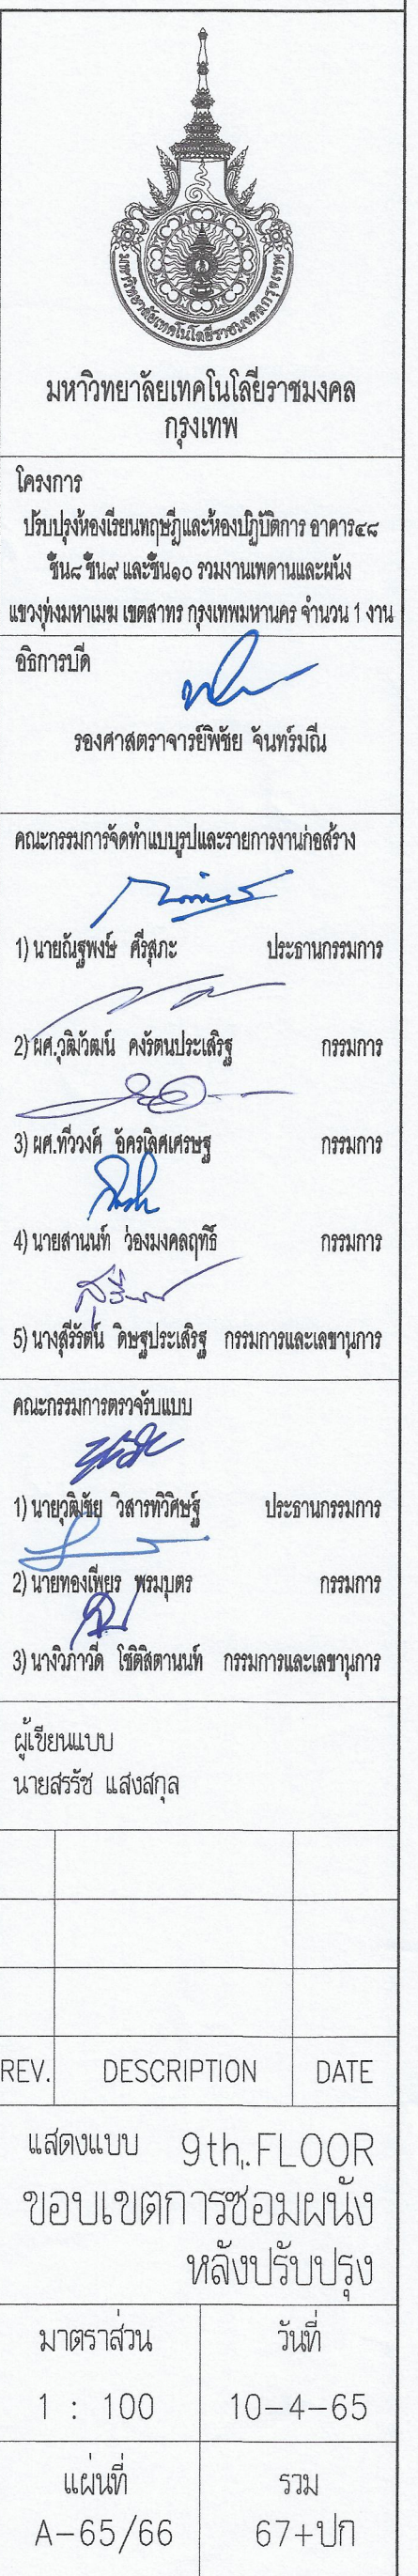 มหาวิทยาลัยเทคโนโลยีราชมงคลกรุงเทพ
มหาวิทยาลัยเทคโนโลยีราชมงคล
กรุงเทพ
โครงการ
ปรับปรุงห้องเรียนทฤษฎีและห้องปฏิบัติการ อาคาร๔๘
ชั้น๘ ชั้น๙ และชั้น๑๐ รวมงานเพดานและผนัง
แขวงทุ่งมหาเมฆ เขตสาทร กรุงเทพมหานคร จำนวน 1 งาน
อธิการบดี
รองศาสตราจารย์พิชัย จันทร์มณี
คณะกรรมการจัดทำแบบรูปและรายการงานก่อสร้าง
1) นายณัฐพงษ์ ศรีสุภะ ประธานกรรมการ
2) ผศ.วุฒิวัฒน์ คงรัตนประเสริฐ กรรมการ
3) ผศ.ทีวงศ์ อัครเลิศเศรษฐ กรรมการ
4) นายสานนท์ ว่องมงคลฤทธิ์ กรรมการ
5) นางสุรีรัตน์ ดิษฐประเสริฐ กรรมการและเลขานุการ
คณะกรรมการตรวจรับแบบ
1) นายวุฒิชัย วิสารทวิศิษฐ์ ประธานกรรมการ
2) นายทองเพียร พรมบุตร กรรมการ
3) นางวิภาวดี โชติสิตานนท์ กรรมการและเลขานุการ
ผู้เขียนแบบ
นายสรรัช แสงสกุล
REV. DESCRIPTION DATE
แสดงแบบ 9th,.FLOOR
ขอบเขตการซ่อมผนัง
หลังปรับปรุง
มาตราส่วน วันที่
1 : 100 10-4-65
แผ่นที่ รวม
A-65/66 67+ปก